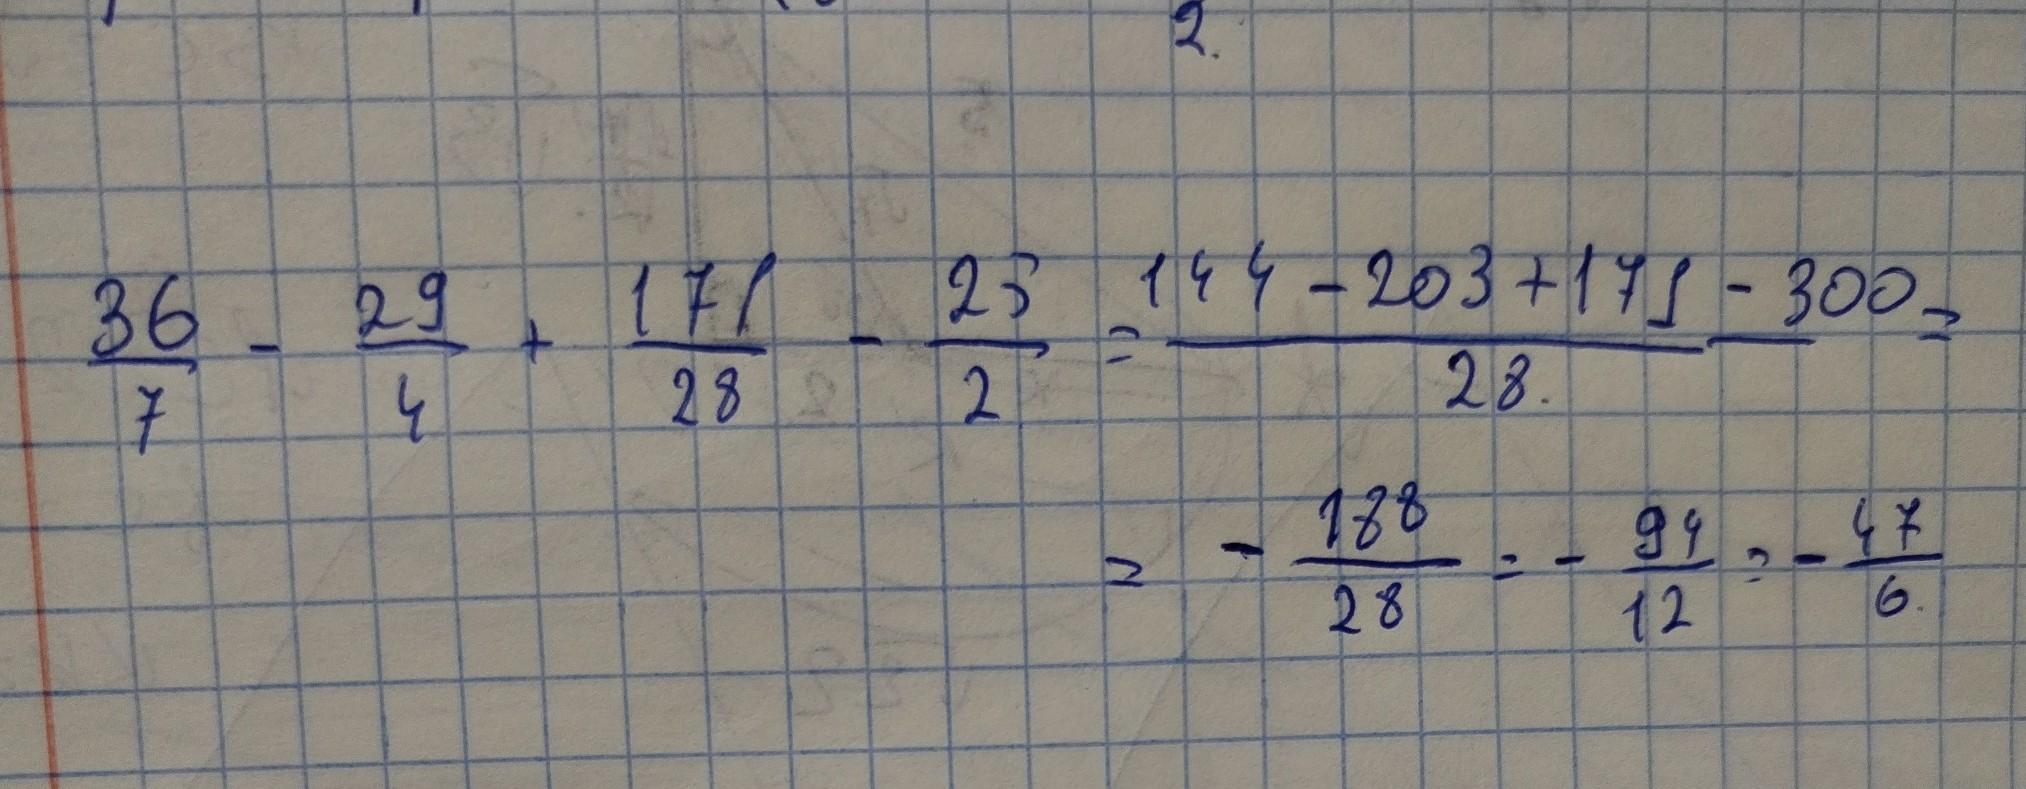 2.
36/7 - 29/4 + 171/28 - 25/2 = (144 - 203 + 171 - 300)/28. =
= - 188/28 = - 94/12 = - 47/6.